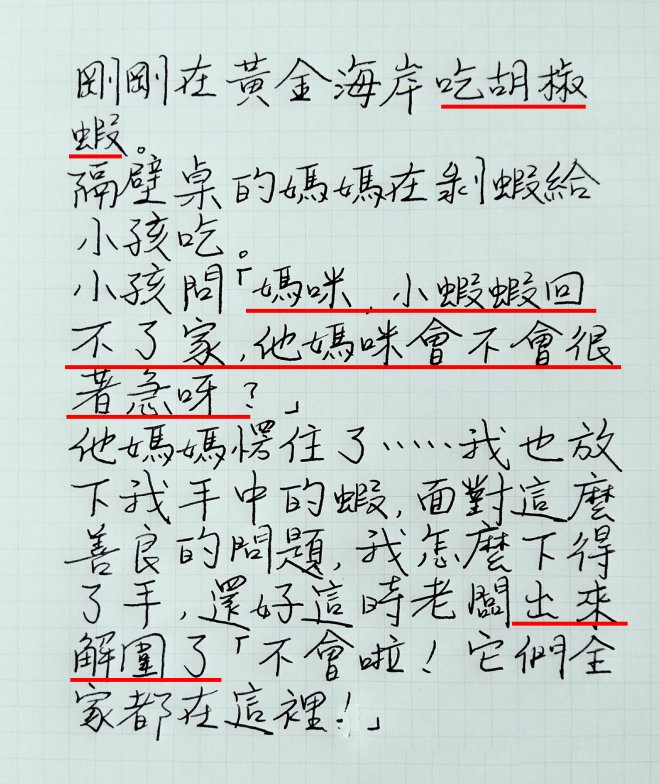 剛剛在黃金海岸吃胡椒
蝦。
隔壁桌的媽媽在剝蝦給
小孩吃。
小孩問「媽咪,小蝦蝦回
不了家,他媽咪會不會很
著急呀?」
他媽媽愣住了……我也放
下我手中的蝦,面對這麼
善良的問題,我怎麼下得
了手,還好這時老闆出來
解圍了「不會啦!它們全
家都在這裡!」